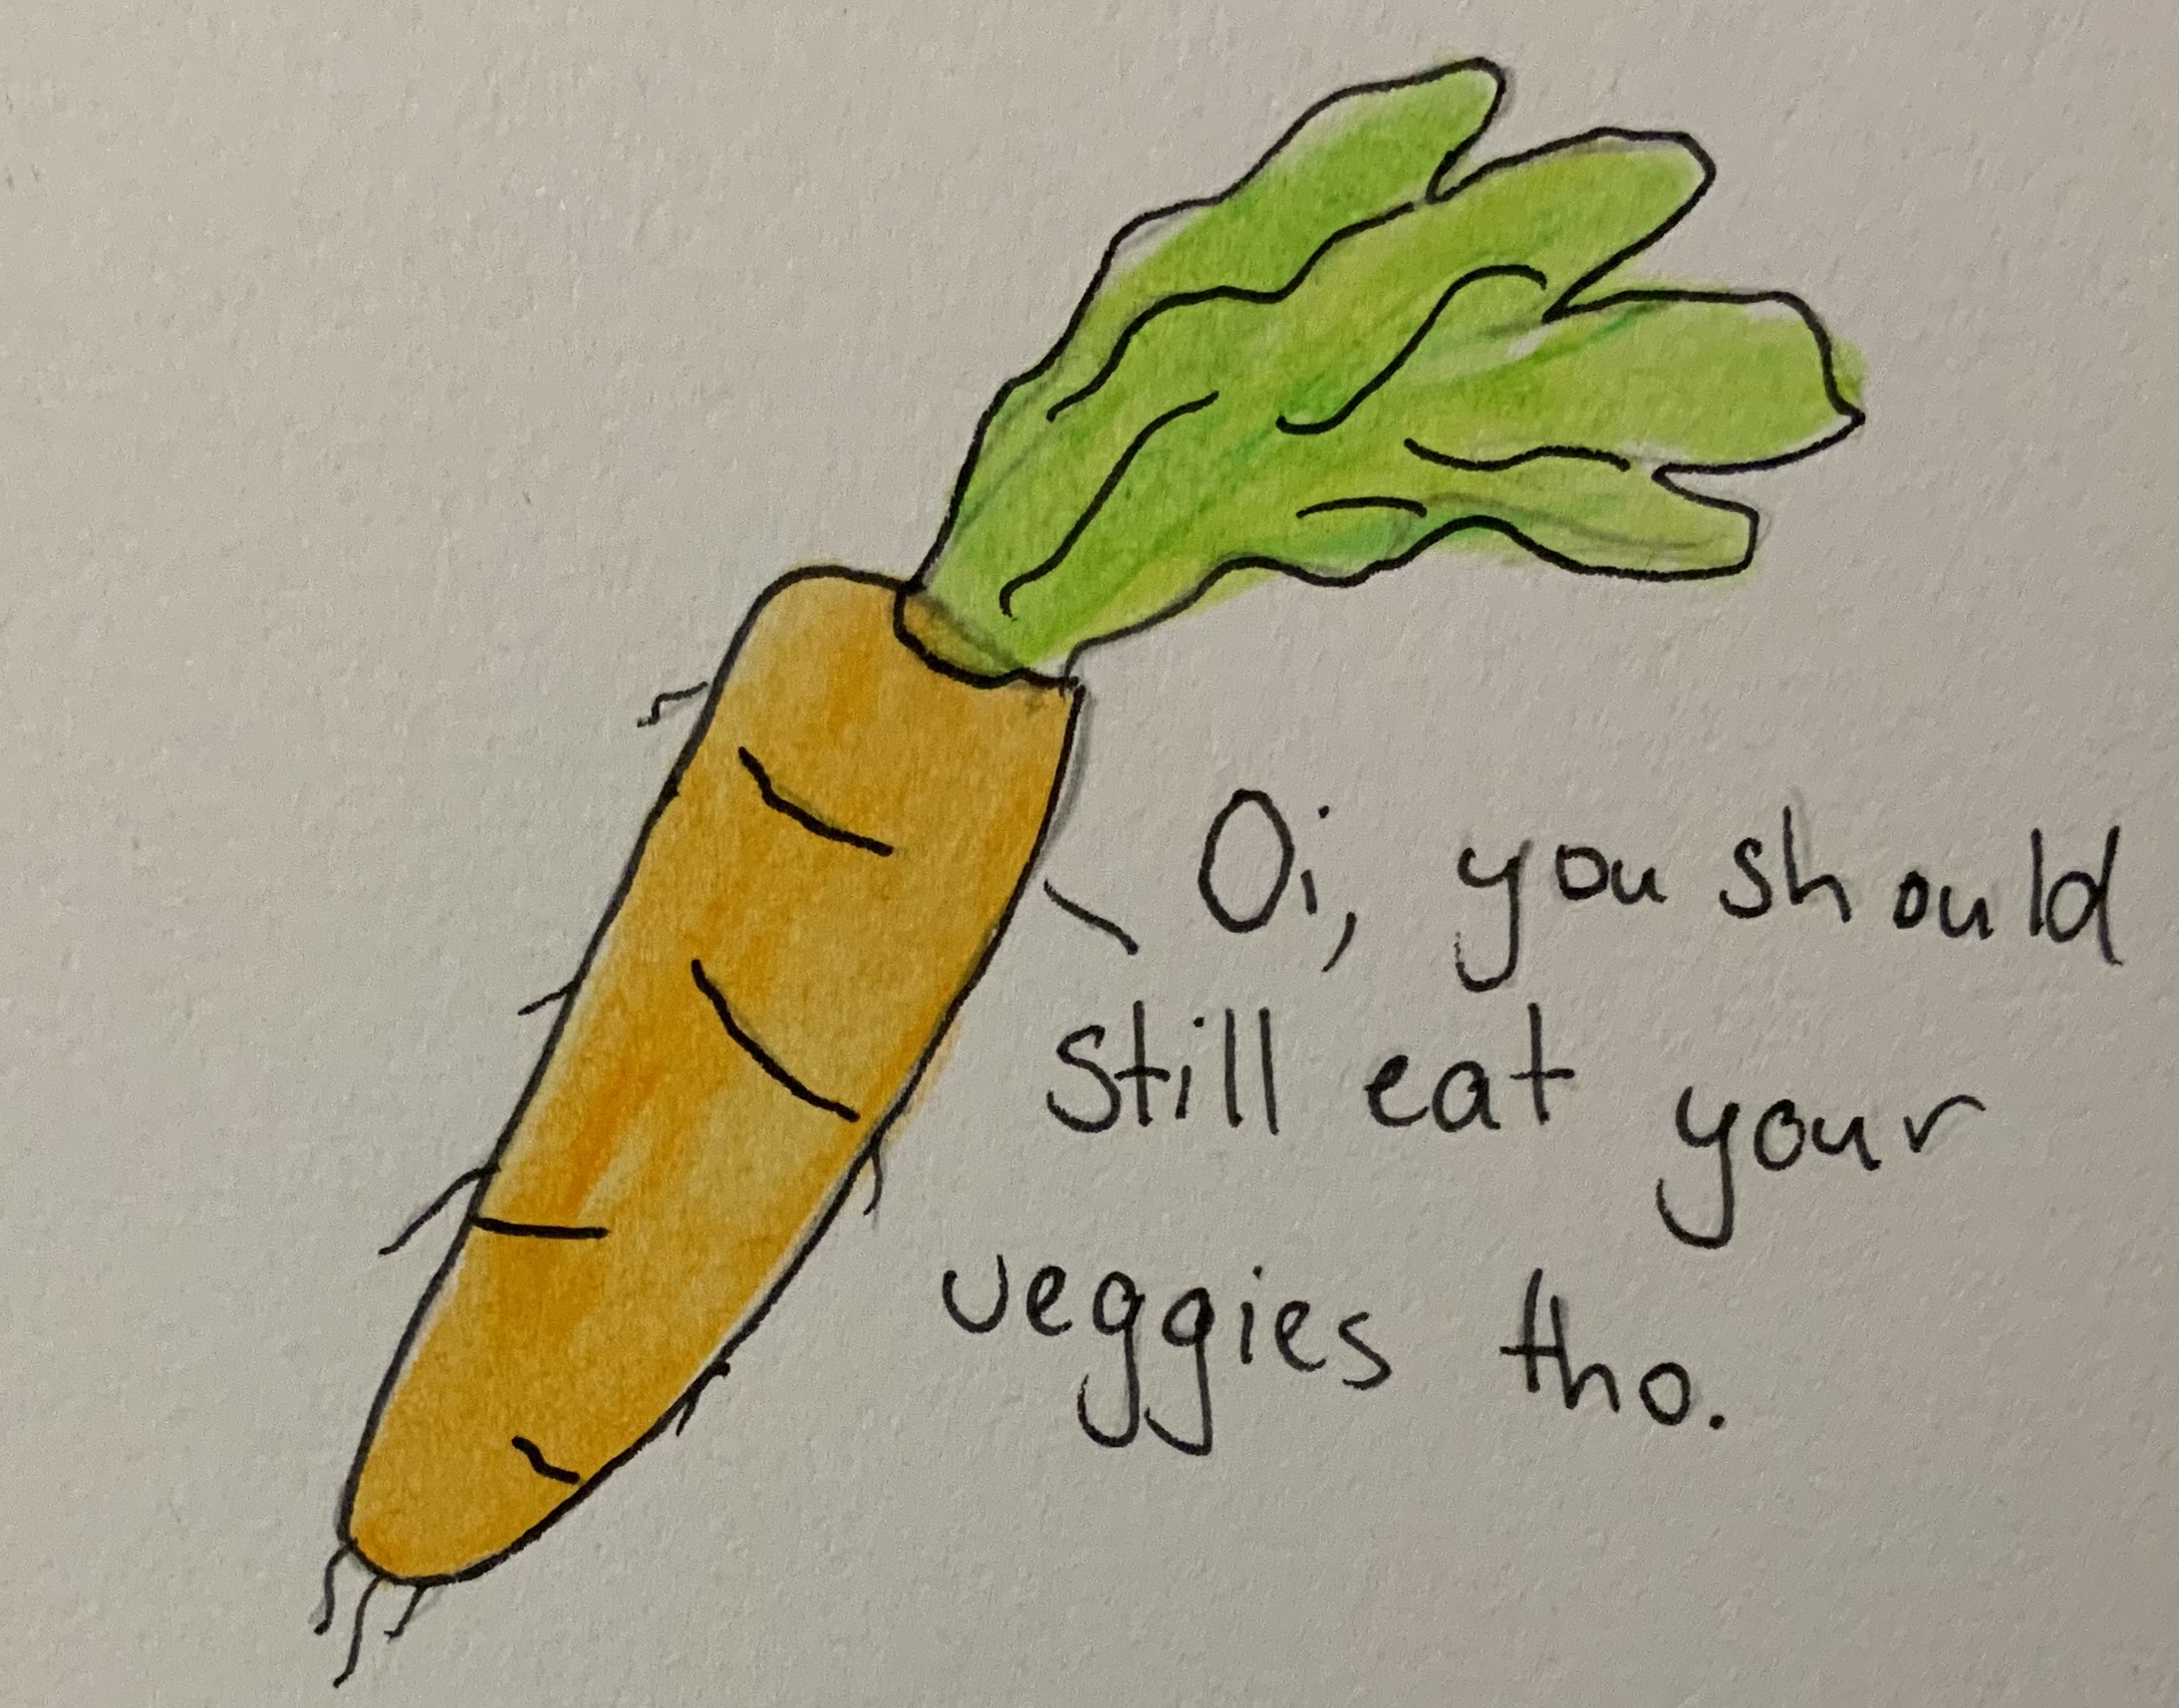 Oi, you should
still eat your
veggies tho.